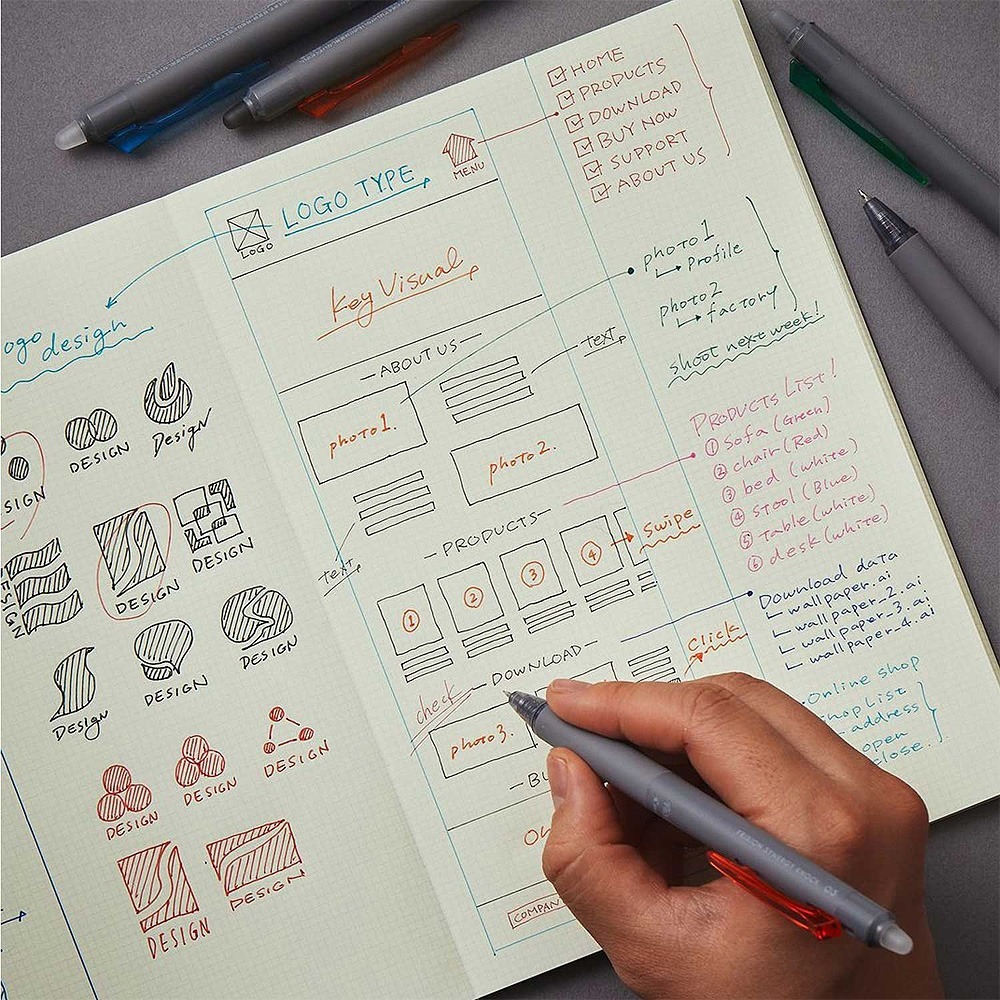 design
DESIGN
Design
DESIGN
DESIGN
DESIGN
DESIGN
Design
DESIGN
DESIGN
DESIGN
DESIGN
DESIGN
DESIGN
DESIGN
LOGO
LOGO TYPE
MENU
Key Visual
ABOUT US
photo1.
text
photo2.
text
PRODUCTS
① ② ③ ④
Swipe
DOWNLOAD
check
Click
photo3.
COMPAN
HOME
PRODUCTS
DOWNLOAD
BUY NOW
SUPPORT
ABOUT US
photo1
Profile
photo2
factory
shoot next week!
PRODUCTS LIST!
① Sofa (Green)
② chair (Red)
③ bed (white)
④ stool (Blue)
⑤ table (white)
⑥ desk (white)
Download data
wallpaper.ai
wallpaper_2.ai
wallpaper_3.ai
wallpaper_4.ai
Online shop
shop List
address
open
close.
FRIXION SYNERGY KNOCK 05